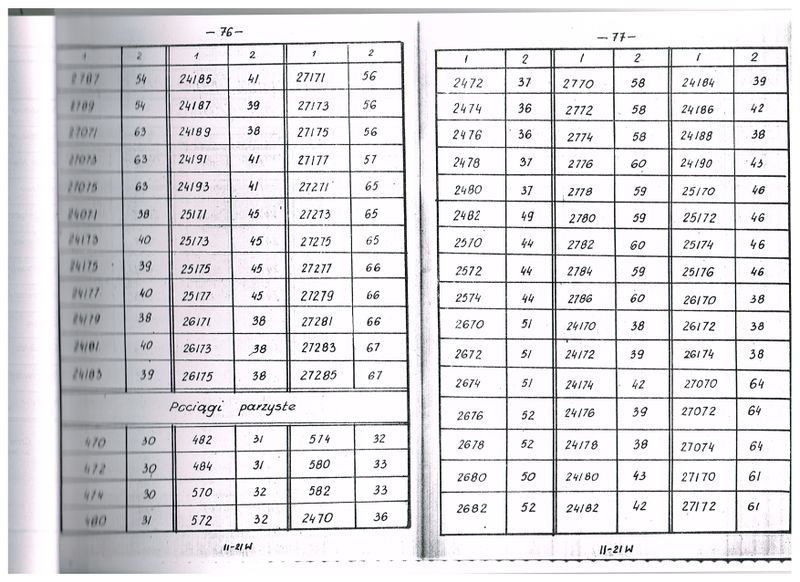 — 76 —
1 2 1 2 1 2
2787 54 24185 41 27171 56
2789 54 24187 39 27173 56
27071 63 24189 38 27175 56
27073 63 24191 41 27177 57
27075 63 24193 41 27271 65
24071 38 25171 45 27273 65
24173 40 25173 45 27275 65
24175 39 25175 45 27277 66
24177 40 25177 45 27279 66
24179 38 26171 38 27281 66
24181 40 26173 38 27283 67
24183 39 26175 38 27285 67
Pociągi parzyste
470 30 482 31 574 32
472 30 484 31 580 33
474 30 570 32 582 33
480 31 572 32 2470 36
II-21W
— 77 —
1 2 1 2 1 2
2472 37 2770 58 24184 39
2474 36 2772 58 24186 42
2476 36 2774 58 24188 38
2478 37 2776 60 24190 43
2480 37 2778 59 25170 46
2482 49 2780 59 25172 46
2570 44 2782 60 25174 46
2572 44 2784 59 25176 46
2574 44 2786 60 26170 38
2670 51 24170 38 26172 38
2672 51 24172 39 26174 38
2674 51 24174 42 27070 64
2676 52 24176 39 27072 64
2678 52 24178 38 27074 64
2680 50 24180 43 27170 61
2682 52 24182 42 27172 61
II-21W